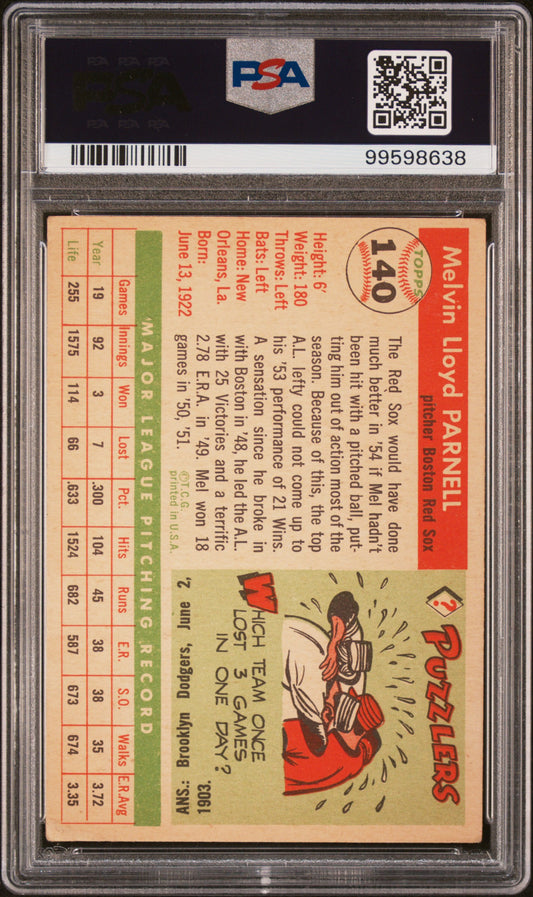 PSA PSA PSA
PSA
PSA PSA PSA
PSA
99598638
TOPPS
140
Melvin Lloyd PARNELL
pitcher Boston Red Sox
Height: 6'
Weight: 180
Throws: Left
Bats: Left
Home: New
Orleans, La.
Born:
June 13, 1922
The Red Sox would have done
much better in '54 if Mel hadn't
been hit with a pitched ball, put-
ting him out of action most of the
season. Because of this, the top
A.L. lefty could not come up to
his '53 performance of 21 Wins.
A sensation since he broke in
with Boston in '48, he led the A.L.
with 25 Victories and a terrific
2.78 E.R.A. in '49. Mel won 18
games in '50, '51.
©T.C.G.
printed in U.S.A.
? PUZZLERS
WHICH TEAM ONCE
LOST 3 GAMES
IN ONE DAY?
ANS.: Brooklyn Dodgers, June 2,
1903.
MAJOR LEAGUE PITCHING RECORD
Games Innings Won Lost Pct. Hits Runs E.R. S.O. Walks E.R.Avg
Year 19 92 3 7 .300 104 45 38 38 35 3.72
Life 255 1575 114 66 .633 1524 682 587 673 674 3.35